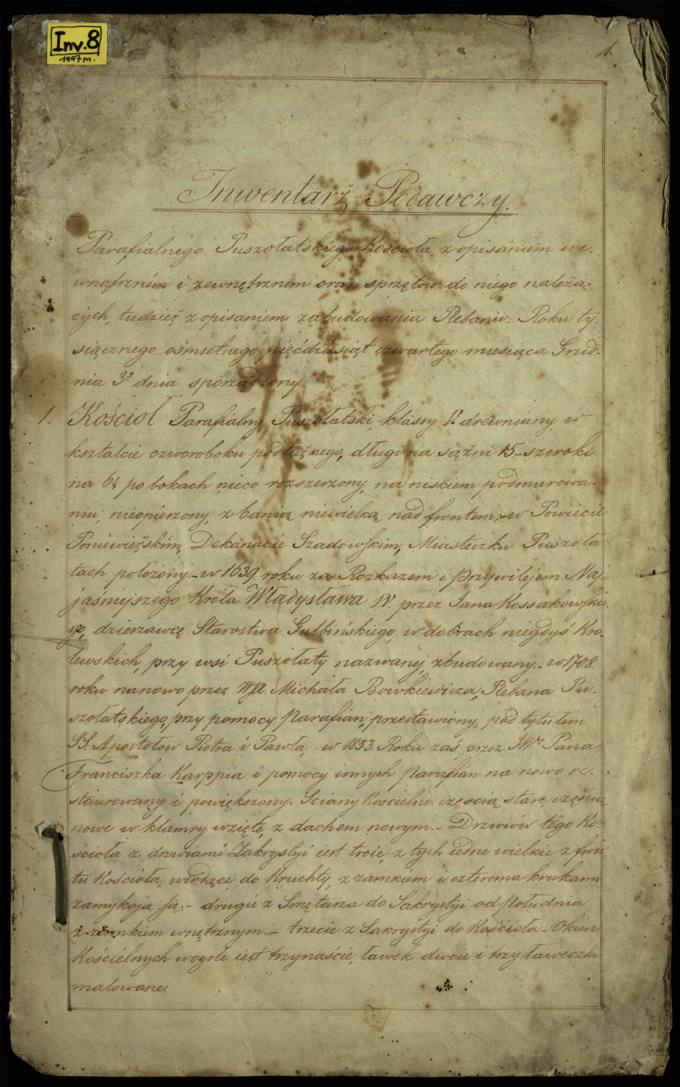 Inv. 8
1997 m.
1.
Inwentarz Podawczy.
Parafialnego Puszołatskiego Kościoła z opisaniem we-
wnętrzném i zewnętrznem oraz sprzętów do niego należą-
cych, tudzież z opisaniem zabudowania Plebanii. Roku ty-
siącznego ośmsetnego pięćdziesiąt czwartego miesiąca Grud-
nia 3º dnia sporządzony.
1. Kościoł Parafialny Puszołatski, klassy drewniany w
kształcie czworoboku podłużnego, długi na sążni 15 szeroki
na 6½ po bokach nieco rozszerzony, na niskiem podmurowa-
niu, nieopierzony, z banią niewielką nad frontem, w Powiecie
Poniewieżskim, Dekanacie Szadowskim, Miasteczku Puszoła-
tach położony w 1639 roku za Rozkazem i Przywilejem Naj-
jaśniejszego Króla Władysława IV. przez Jana Kossakowskie-
go, dzierżawcę Starostwa Gulbińskiego, w dobrach niegdyś Kró-
lewskich, przy wsi Puszołaty nazwanej, zbudowany w 1708.
roku nanowo przez Michała Bowkiewicza, Plebana Pu-
szołatskiego, przy pomocy Parafian, przestawiony, pod tytułem
SS. Apostołów Piotra i Pawła, w 1833. Roku zaś przez JWº Pana
Franciszka Karppia i pomocy innych Parafian na nowo re-
staurowany i powiększony. Sciany Kościelne częscią stare, częscią
nowe w klamry wzięte, z dachem nowym. Drzwiów tego Ko-
ścioła z drzwiami Zakrystyi iest troie, z tych iedne wielkie z fron-
tu Kościoła, wiodące do Kruchty, z zamkiem i czterema krukami
zamykają się. drugie z Smętarza do Sakrystyi od Południa
z zamkiem wnętrznym. trzecie z Sakrystyi do Kościoła. Okien
Kościelnych wogóle iest trzynaście, ławek dwoie i trzy ławeczki
malowane.